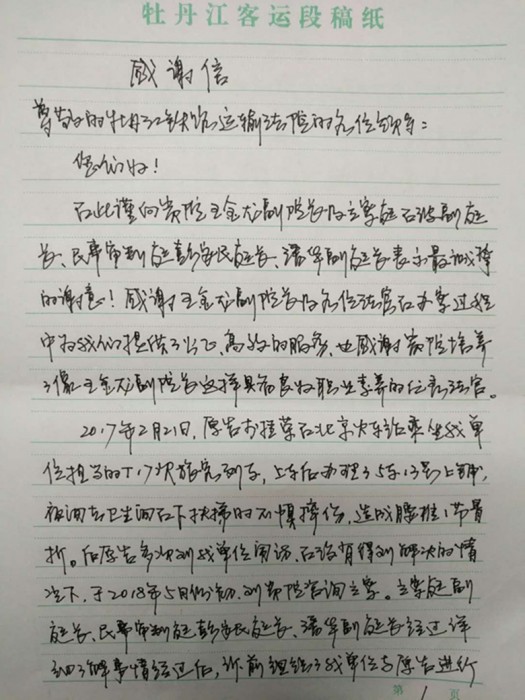 牡丹江客运段稿纸
感谢信
尊敬的牡丹江铁路运输法院的各位领导：
您们好！
在此谨向贵院王金龙副院长及立案庭石波副庭
长、民事审判庭彭安民庭长、潘华副庭长表示最诚挚
的谢意！感谢王金龙副院长及各位法官在办案过程
中为我们提供了公正、高效的服务，也感谢贵院培养
了像王金龙副院长这样具有良好职业素养的任表法官。
2017年2月21日，原告于桂荣在北京火车站乘坐我单
位担当的T17次旅客列车，上车后办理了5车13号上铺，
夜间去卫生间在下扶梯时不慎摔伤，造成腰椎1节骨
折。后原告多次到我单位闹访，在没有得到解决的情
况下，于2018年5月份初，到贵院咨询立案。立案庭副
庭长、民事审判庭彭安民庭长、潘华副庭长经过详
细了解事情经过后，诉前组织了我单位与原告进行
第 1 页